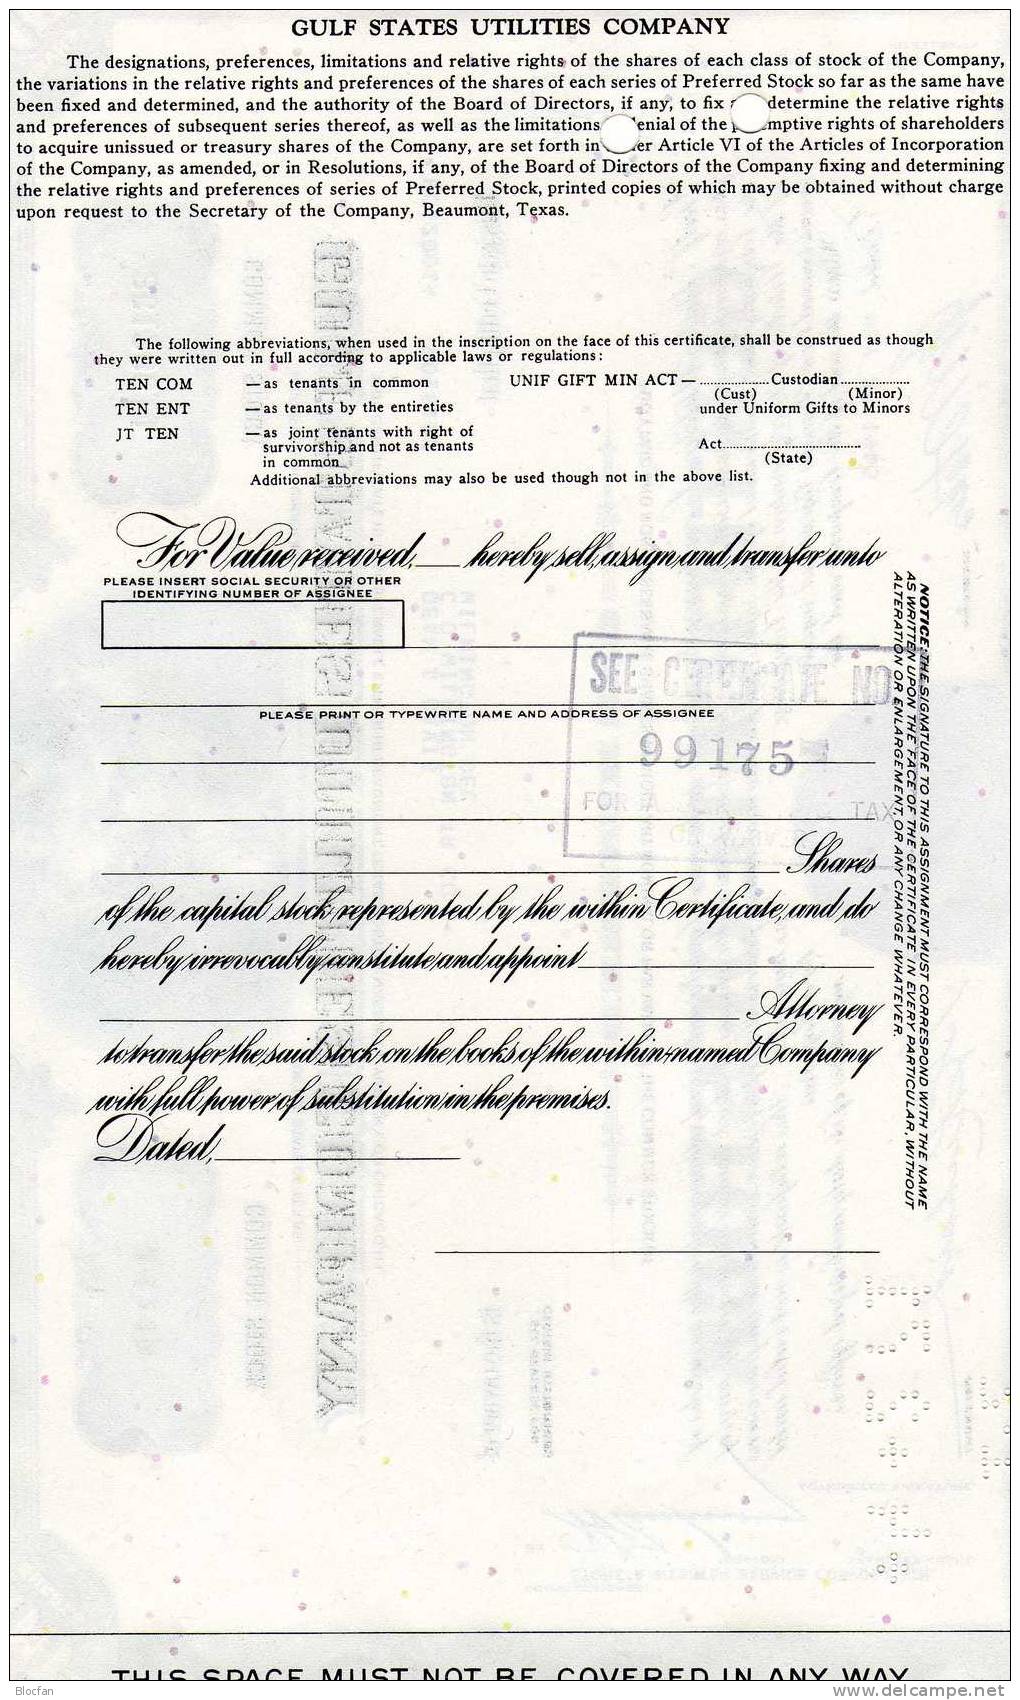 GULF STATES UTILITIES COMPANY
The designations, preferences, limitations and relative rights of the shares of each class of stock of the Company,
the variations in the relative rights and preferences of the shares of each series of Preferred Stock so far as the same have
been fixed and determined, and the authority of the Board of Directors, if any, to fix determine the relative rights
and preferences of subsequent series thereof, as well as the limitations enial of the mptive rights of shareholders
to acquire unissued or treasury shares of the Company, are set forth in er Article VI of the Articles of Incorporation
of the Company, as amended, or in Resolutions, if any, of the Board of Directors of the Company fixing and determining
the relative rights and preferences of series of Preferred Stock, printed copies of which may be obtained without charge
upon request to the Secretary of the Company, Beaumont, Texas.
The following abbreviations, when used in the inscription on the face of this certificate, shall be construed as though
they were written out in full according to applicable laws or regulations:
TEN COM —as tenants in common UNIF GIFT MIN ACT—....................Custodian....................
(Cust) (Minor)
TEN ENT —as tenants by the entireties under Uniform Gifts to Minors
JT TEN —as joint tenants with right of
survivorship and not as tenants Act........................................
in common (State)
Additional abbreviations may also be used though not in the above list.
For Value received, ____ hereby sell, assign and transfer unto
PLEASE INSERT SOCIAL SECURITY OR OTHER
IDENTIFYING NUMBER OF ASSIGNEE
SEE CERTIFICATE NO
PLEASE PRINT OR TYPEWRITE NAME AND ADDRESS OF ASSIGNEE
99175
FOR TAX
Shares
of the capital stock represented by the within Certificate, and do
hereby irrevocably constitute and appoint
Attorney
to transfer the said stock on the books of the within-named Company
with full power of substitution in the premises.
Dated,
NOTICE: THE SIGNATURE TO THIS ASSIGNMENT MUST CORRESPOND WITH THE NAME
AS WRITTEN UPON THE FACE OF THE CERTIFICATE IN EVERY PARTICULAR, WITHOUT
ALTERATION OR ENLARGEMENT, OR ANY CHANGE WHATEVER.
THIS SPACE MUST NOT BE COVERED IN ANY WAY
Blocfan
www.delcampe.net